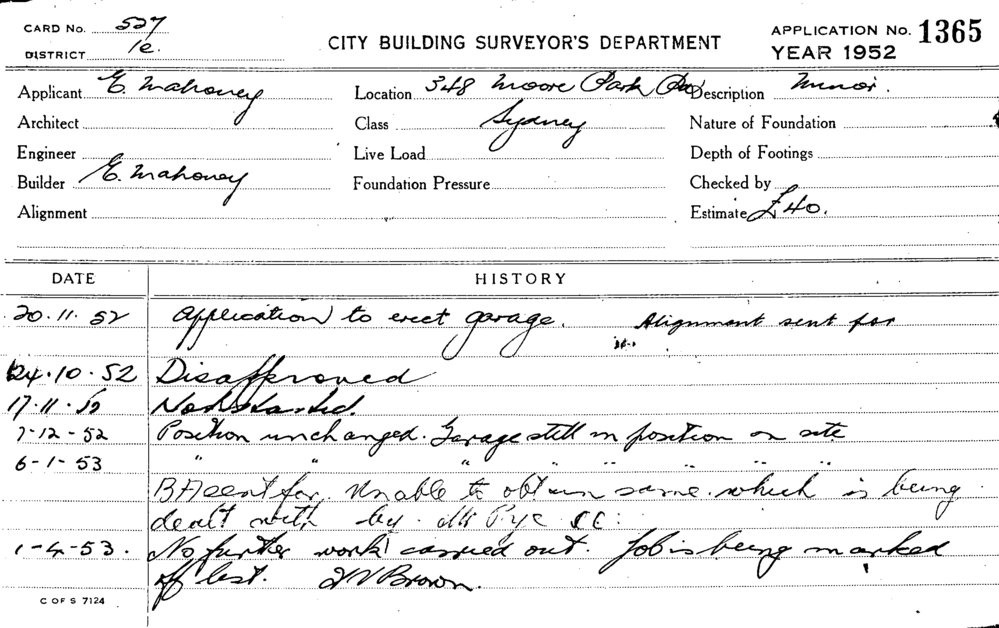 CARD No. 527
DISTRICT 1e.
CITY BUILDING SURVEYOR'S DEPARTMENT
APPLICATION No. 1365
YEAR 1952
Applicant E. Mahoney
Location 348 Moore Park Rd
Description Minor.
Architect
Class Sydney
Nature of Foundation
Engineer
Live Load
Depth of Footings
Builder E. Mahoney
Foundation Pressure
Checked by
Alignment
Estimate £40.
DATE HISTORY
20.11.52 Application to erect garage. Alignment sent for
24.10.52 Disapproved
17.11.52 Not started.
1-12-52 Position unchanged. Garage still in position on site
6-1-53 " " " " " " "
sent for. Unable to obtain same which is being
dealt with by Mr Pye
1-4-53. No further work carried out. Job is being marked
off list. Brown.
C OF S 7124